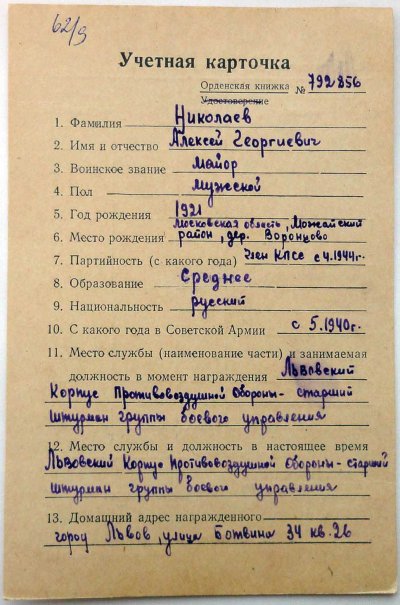 62/9
Учетная карточка
Орденская книжка
Удостоверение № 792856
1. Фамилия Николаев
2. Имя и отчество Алексей Георгиевич
3. Воинское звание майор
4. Пол мужской
5. Год рождения 1921
Московская область, Можайский
6. Место рождения район, дер. Воронцово
7. Партийность (с какого года) Член КПСС с 4.1944г.
8. Образование Среднее
9. Национальность русский
10. С какого года в Советской Армии с 5.1940г.
11. Место службы (наименование части) и занимаемая
должность в момент награждения Львовский
Корпус Противовоздушной Обороны - старший
штурман группы боевого управления
12. Место службы и должность в настоящее время
Львовский Корпус Противовоздушной Обороны - старший
штурман группы боевого управления
13. Домашний адрес награжденного
город Львов, улица Ботвина 34 кв. 26